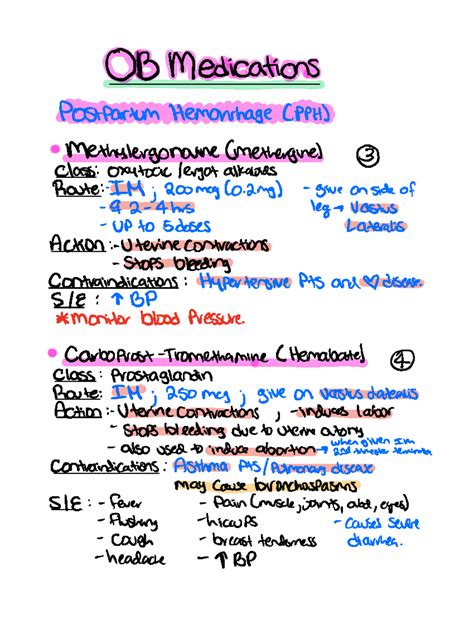 OB Medications
Postpartum Hemorrhage (PPH)
• Methylergonovine (methergine) ③
Class: oxytocic /ergot alkaloids
Route: - IM ; 200mcg (0.2mg) - give on side of
- q 2-4 hrs leg → Vastus
- UP to 5 doses Lateralis
Action :- Uterine contractions
- Stops bleeding
Contraindications : Hypertensive Pts and ♡ disease.
S/E : ↑ BP
*monitor blood Pressure.
• Carboprost-Tromethamine (Hemabate) ④
Class : Prostaglandin
Route: IM ; 250 mcg ; give on vastus lateralis
Action :- Uterine contractions ; - induces labor
- Stops bleeding due to uterine atony
- also used to induce abortion → when given IM
2nd trimester
Contraindications : Asthma Pts/Pulmonary disease
may cause bronchospasms
S/E : - Fever - Pain (muscle, joints, abd, eyes)
- Flushing - hiccups - causes severe
- Cough - breast tenderness diarrhea.
- headache - ↑ BP